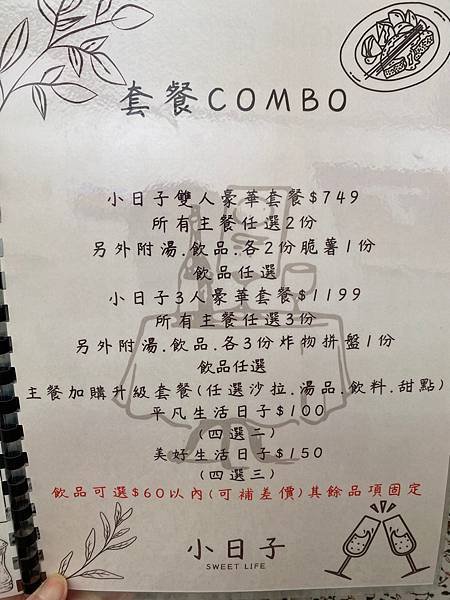 套餐COMBO
小日子雙人豪華套餐$749
所有主餐任選2份
另外附湯.飲品.各2份脆薯1份
飲品任選
小日子3人豪華套餐$1199
所有主餐任選3份
另外附湯.飲品.各3份炸物拼盤1份
飲品任選
主餐加購升級套餐(任選沙拉.湯品.飲料.甜點)
平凡生活日子$100
(四選二)
美好生活日子$150
(四選三)
飲品可選$60以內(可補差價)其餘品項固定
小日子
SWEET LIFE